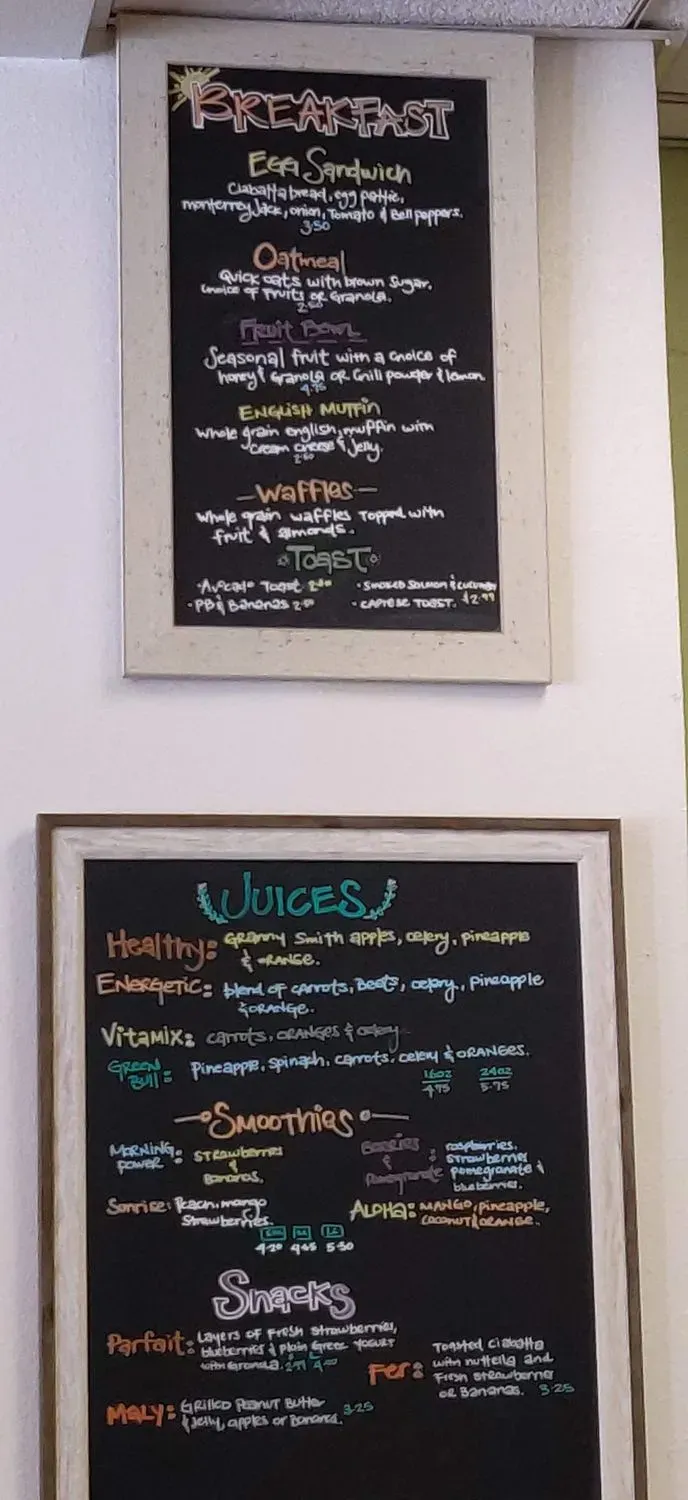 BREAKFAST
Egg Sandwich
Ciabatta bread, egg pattie,
monterrey Jack, onion, Tomato & Bell peppers.
3.50
Oatmeal
Quick oats with brown Sugar,
choice of Fruits or Granola.
Fruit Bowl
Seasonal fruit with a choice of
honey & Granola or Chili powder & lemon
4.75
ENGLISH MUFFin
Whole grain english muffin with
cream cheese & Jelly.
Waffles
Whole grain waffles Topped with
fruit & almonds.
TOAST
· Avocado Toast · SMOKED SALMON & CUCUMBER
· PB & Bananas · CAPRESE TOAST. $2.99
JUICES
Healthy: GRANNY Smith apples, celery, pineapple
& ORANGE.
ENERGETIC: blend of carrots, Beets, celery, pineapple
& ORANGE.
Vitamix: carrots, ORANGES & celery.
GREEN BULL: pineapple, spinach, carrots, celery & ORANGES.
16oz 24oz
4.75 5.75
Smoothies
MORNING POWER: STRAWBERRIES
&
BANANAS.
BERRIES & Pomegranate: raspberries,
STRAWBERRIES
pomegranate &
blueberries.
Sunrise: Peach, mango
Strawberries.
ALOHA: MANGO, pineapple,
COCONUT & ORANGE.
4.20 5.50
Snacks
Parfait: LAYERS OF FRESH strawberries,
blueberries & plain Greek YOGURT
with Granola.
Fer: Toasted Ciabatta
with nuttella and
Fresh STRAWBERRIES
OR BANANAS. 3.25
MALY: GRILLED PEANUT BUTTER
& Jelly, apples or Banana. 3.25